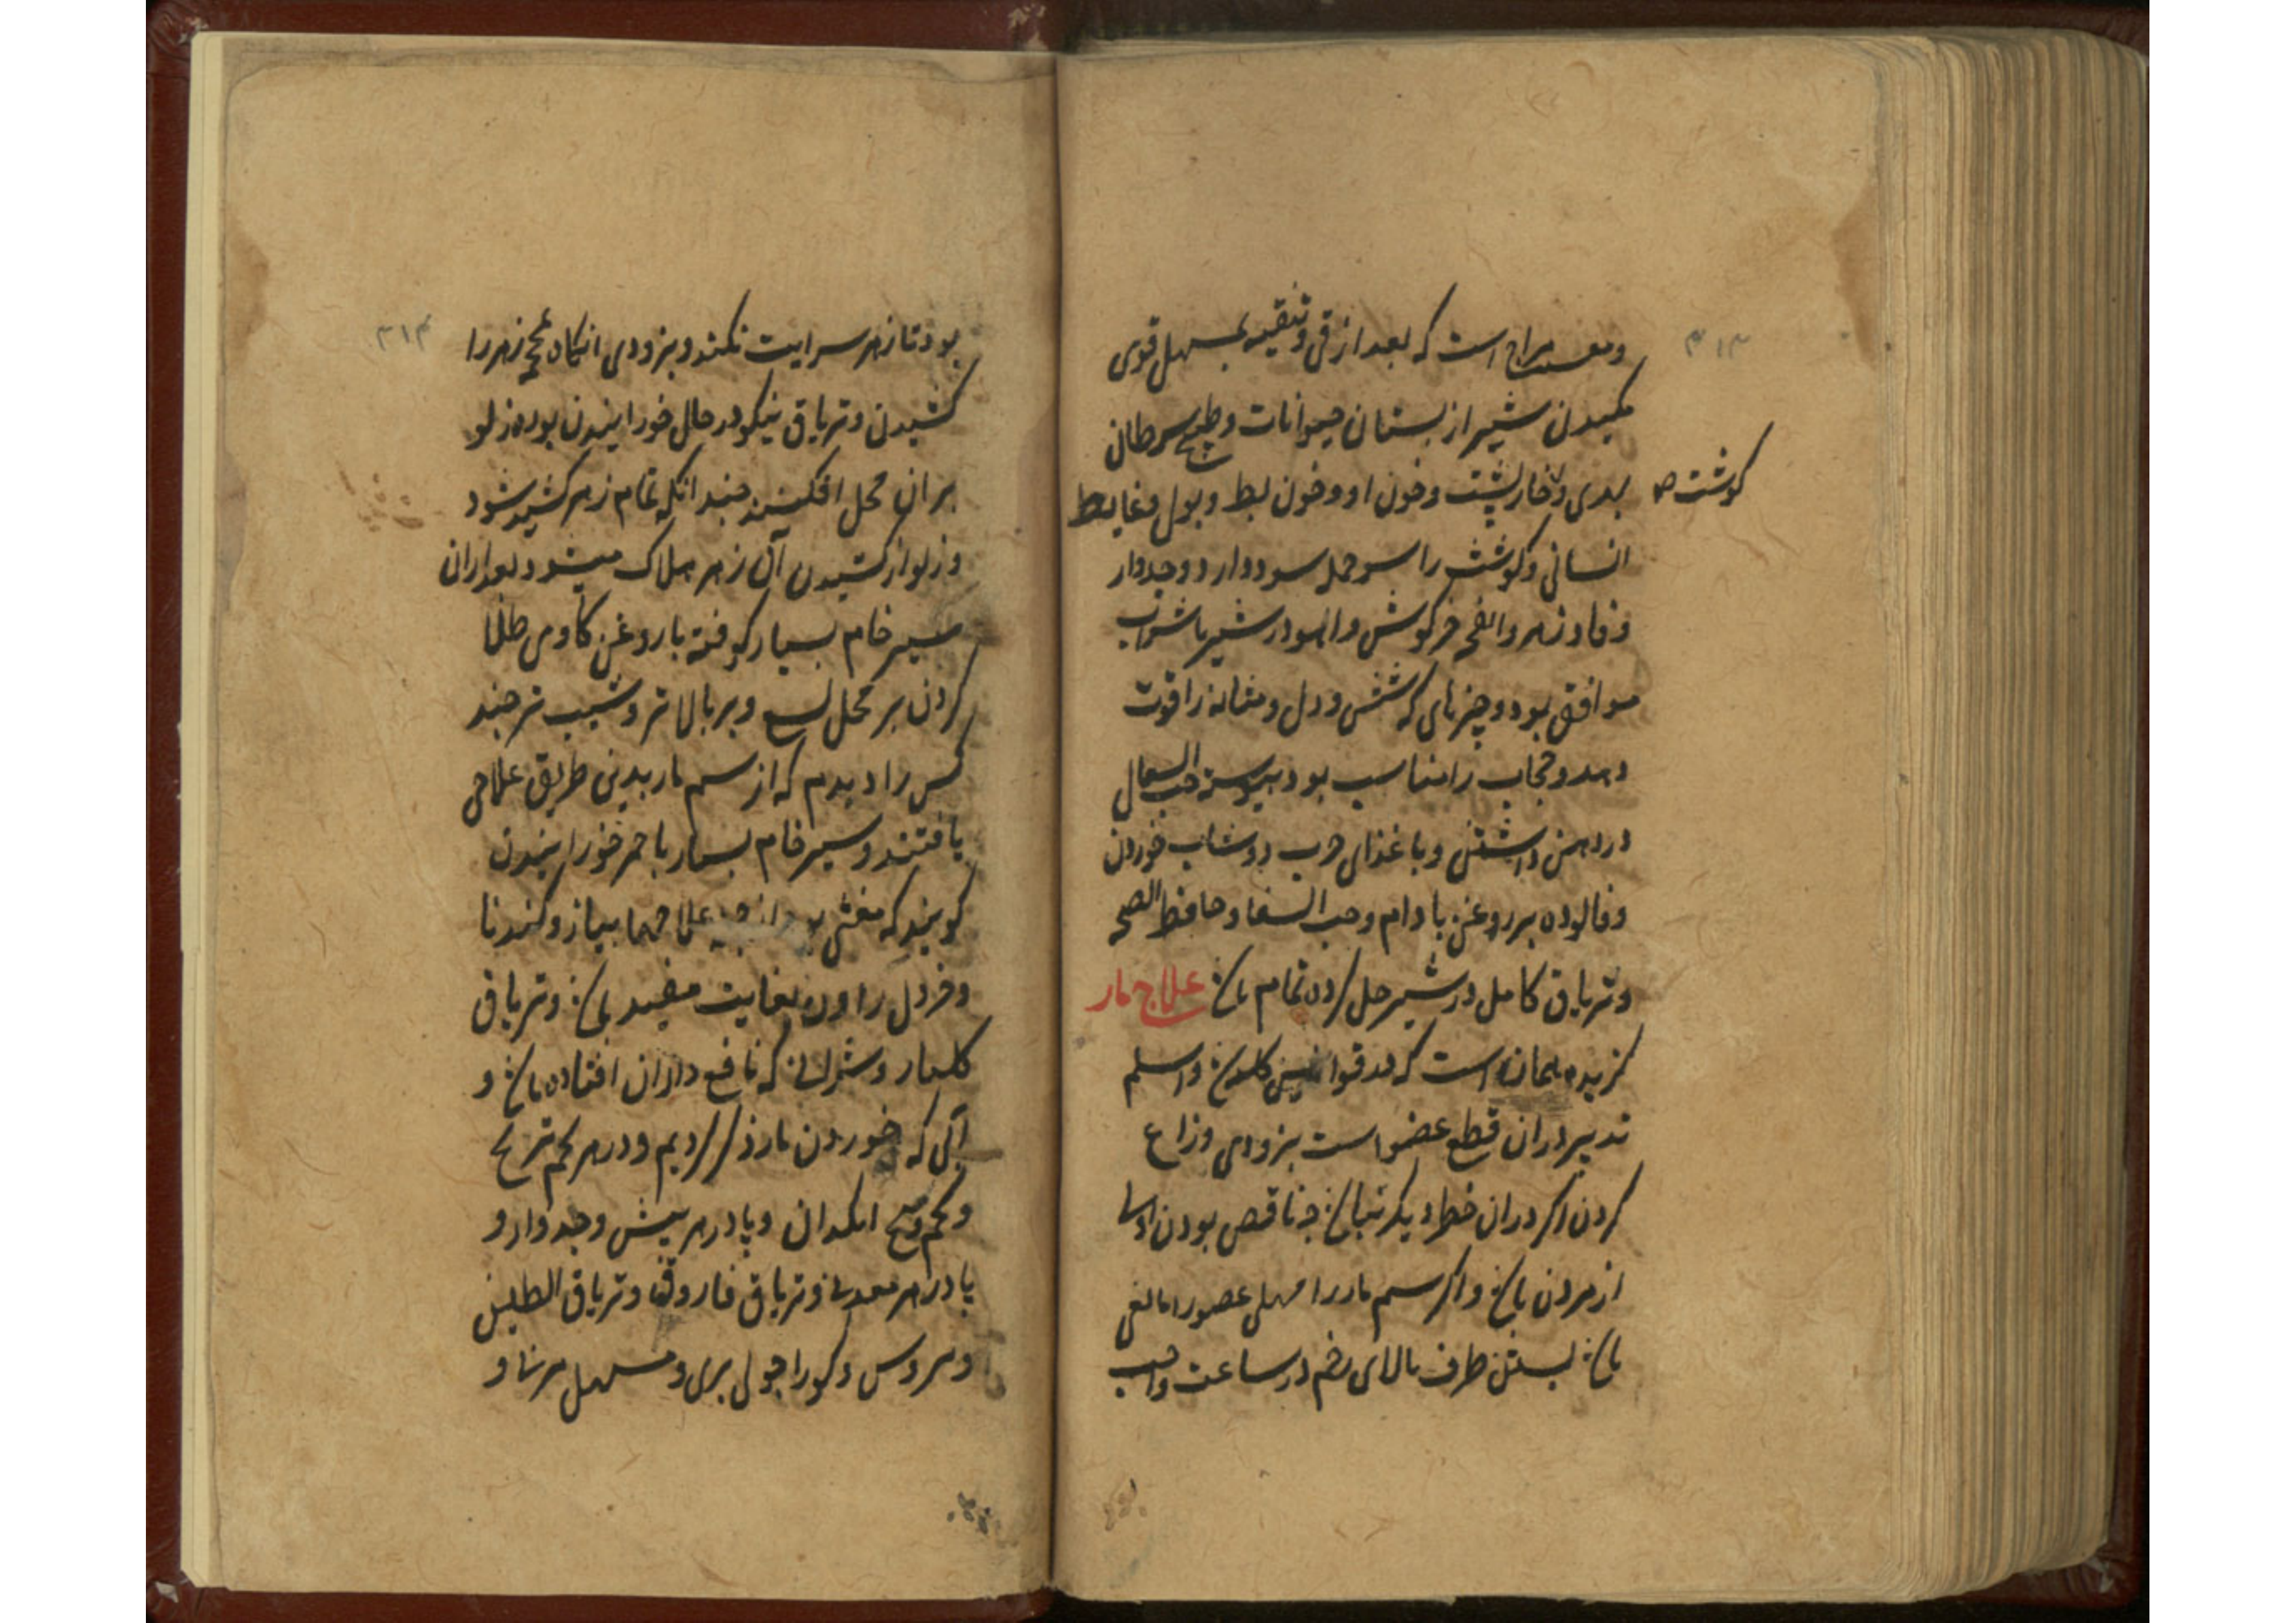 ۳۱۳
است که بعد از قی و تنقیه بمسهل قوی
مکیدن شیر از پستان حیوانات و طبیخ سرطان
گوشت صح
خارپشت و خون او و خون بط و بول و غایط
انسانی و گوشت راسو جمله سود دارد و جدوار
و فادزهر و انفحه خرگوش و آهو در شیر یا شراب
موافق بود و چیزهای که شش و دل و مثانه را قوت
دهد و حجاب را مناسب بود پیوسته حب السعال
در دهن داشتن و با غذای چرب دوشاب خوردن
و فالوده بر روغن بادام و حب الشفا و حافظ الصحه
و تریاق کامل در شیر حل کرده تمام باشد علاج مار
گزیده همانست که در قوانین واسلم
تدبیر در آن قطع عضو است بزودی و زاع
کردن اگر در آن خطر دیگر نباشد چه ناقص بودن
از مردن باشد و اگر سم مار را مهلی عضو را مانعی
باشد بستن طرف بالای زخم در ساعت واجب
۳۱۴
بود تا زهر سرایت نکند و بزودی زهر را
کشیدن و تریاق نیکو در حال خورانیدن بود و زلو
بر آن محل افکنند چندانکه تمام زهر کشیده شود
و زلو از کشیدن آن زهر هلاک میشود بعد از آن
سیر خام بسیار کوفته با روغن گاوی طلا
کردن بر محل لسع و بر بالاتر و شیب تر چند
کس را دیدم که از سم مار بدین طریق علاجی
یافتند و سیر خام بسیار با خمر خورانیدن
گویند که مغنی بود از جمیع علاجها پیاز و گندنا
و خردل را درین بغایت مفید باشد و تریاق
که نافع در آن افتاده باشد و
آنی که خوردن مار ذکر کردیم و در هر تخم ترنج
و تخم انگدان و پادزهر بیش و جدوار و
پادزهر معدنی و تریاق فاروق و تریاق الطین
بری و مسهل